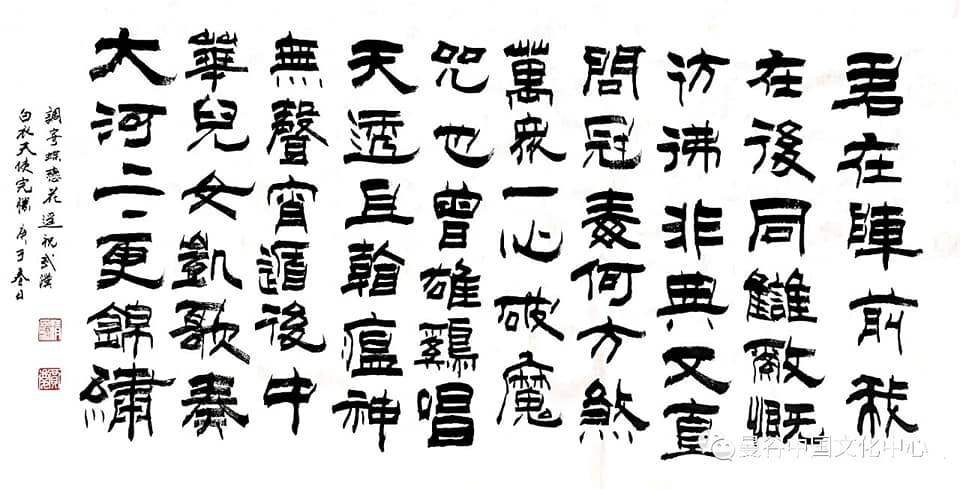 君在陣前我
在後同讎敵慨
彷彿非典又直
問冠毒何方煞
萬衆一心破魔
咒也曾雄鷄唱
天透且看瘟神
無聲宵遁後中
華兒女凱歌奏
大河上下更錦繡
調寄蝶戀花遥祝武漢
白衣天使完勝庚子春日
曼谷中国文化中心